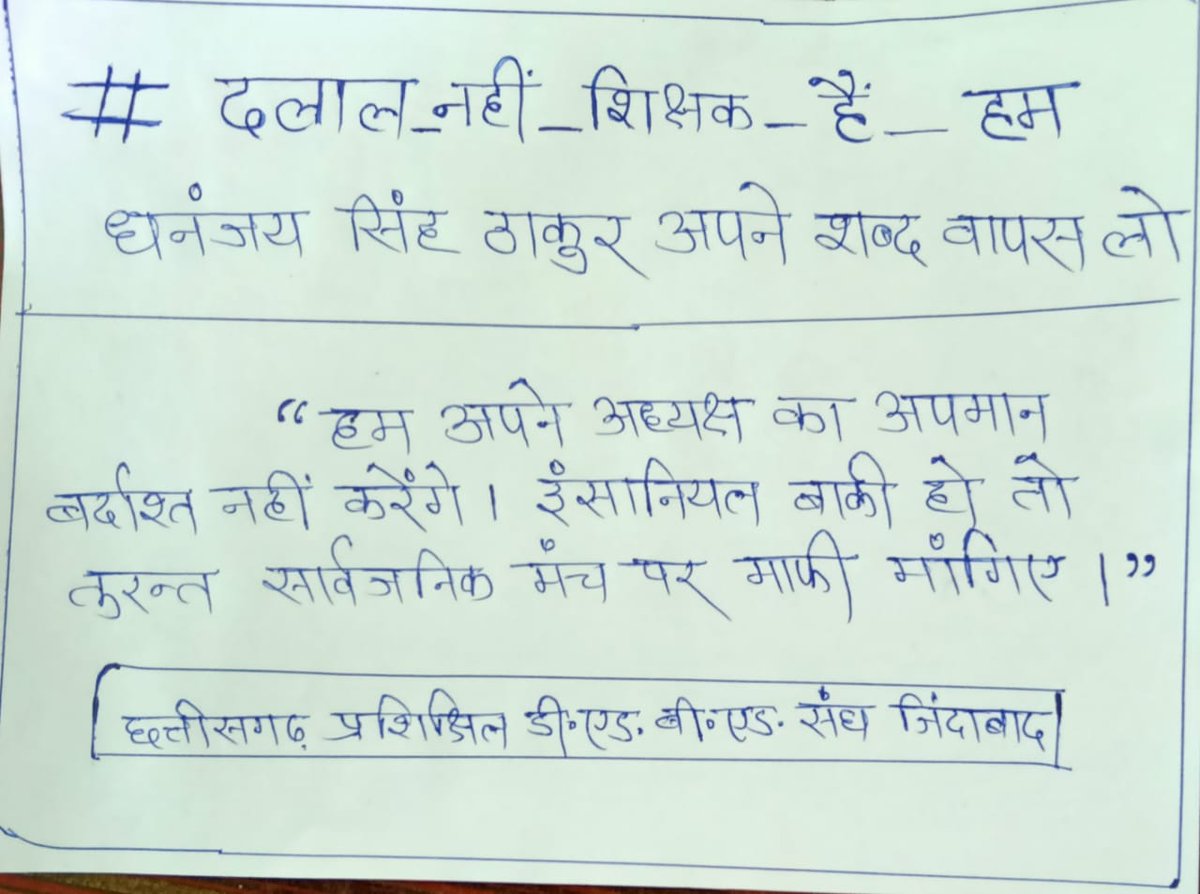 # दलाल_नहीं_शिक्षक_हैं_हम
धनंजय सिंह ठाकुर अपने शब्द वापस लो
“हम अपने अध्यक्ष का अपमान
बर्दाश्त नहीं करेंगे। इंसानियत बाकी हो तो
तुरन्त सार्वजनिक मंच पर माफी माँगिए।”
छत्तीसगढ़ प्रशिक्षित डी॰एड॰ बी॰एड॰ संघ जिंदाबाद